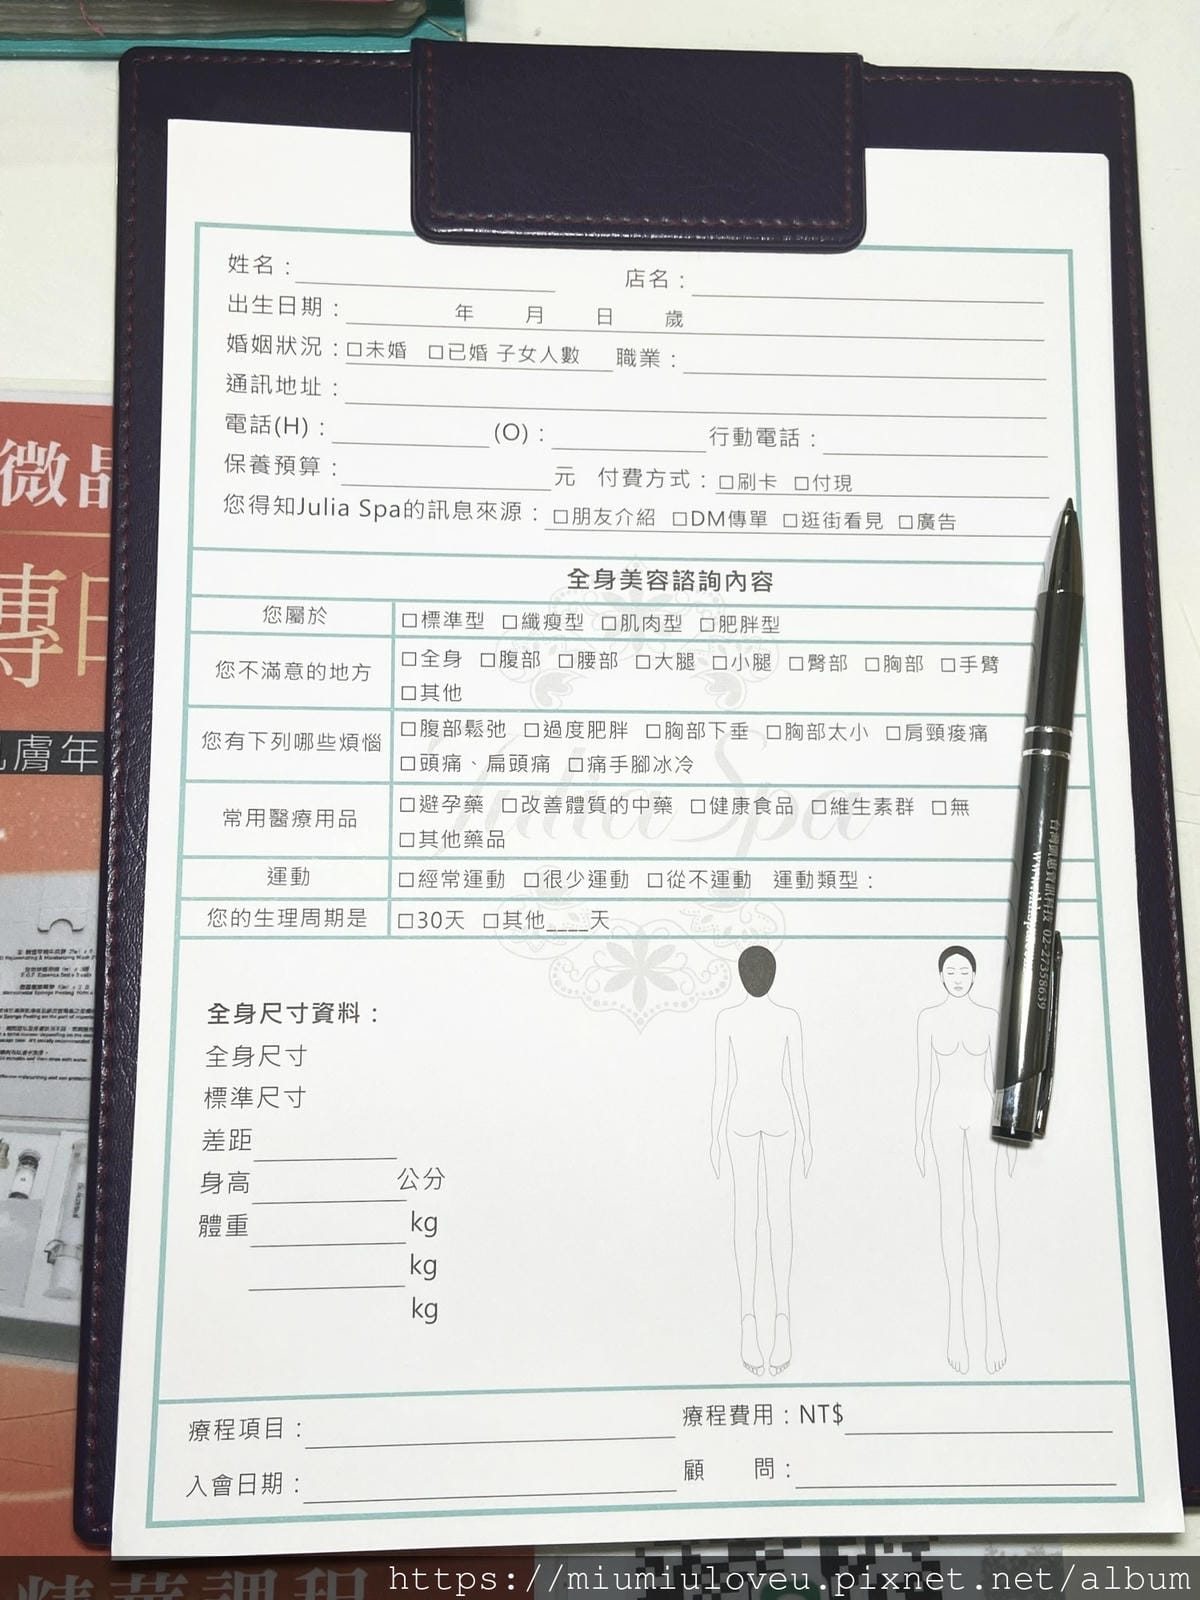 姓名： 店名：
出生日期： 年 月 日 歲
婚姻狀況：□未婚 □已婚 子女人數 職業：
通訊地址：
電話(H)： (O)： 行動電話：
保養預算： 元 付費方式：□刷卡 □付現
您得知Julia Spa的訊息來源：□朋友介紹 □DM傳單 □逛街看見 □廣告
全身美容諮詢內容
您屬於 □標準型 □纖瘦型 □肌肉型 □肥胖型
您不滿意的地方 □全身 □腹部 □腰部 □大腿 □小腿 □臀部 □胸部 □手臂
□其他
您有下列哪些煩惱 □腹部鬆弛 □過度肥胖 □胸部下垂 □胸部太小 □肩頸痠痛
□頭痛、扁頭痛 □痛手腳冰冷
常用醫療用品 □避孕藥 □改善體質的中藥 □健康食品 □維生素群 □無
□其他藥品
運動 □經常運動 □很少運動 □從不運動 運動類型：
您的生理周期是 □30天 □其他____天
Julia Spa
全身尺寸資料：
全身尺寸
標準尺寸
差距
身高 公分
體重 kg
kg
kg
療程項目： 療程費用：NT$
入會日期： 顧 問：
02-27358639
微
專
膚年
精華課程
https://miumiuloveu.pixnet.net/album